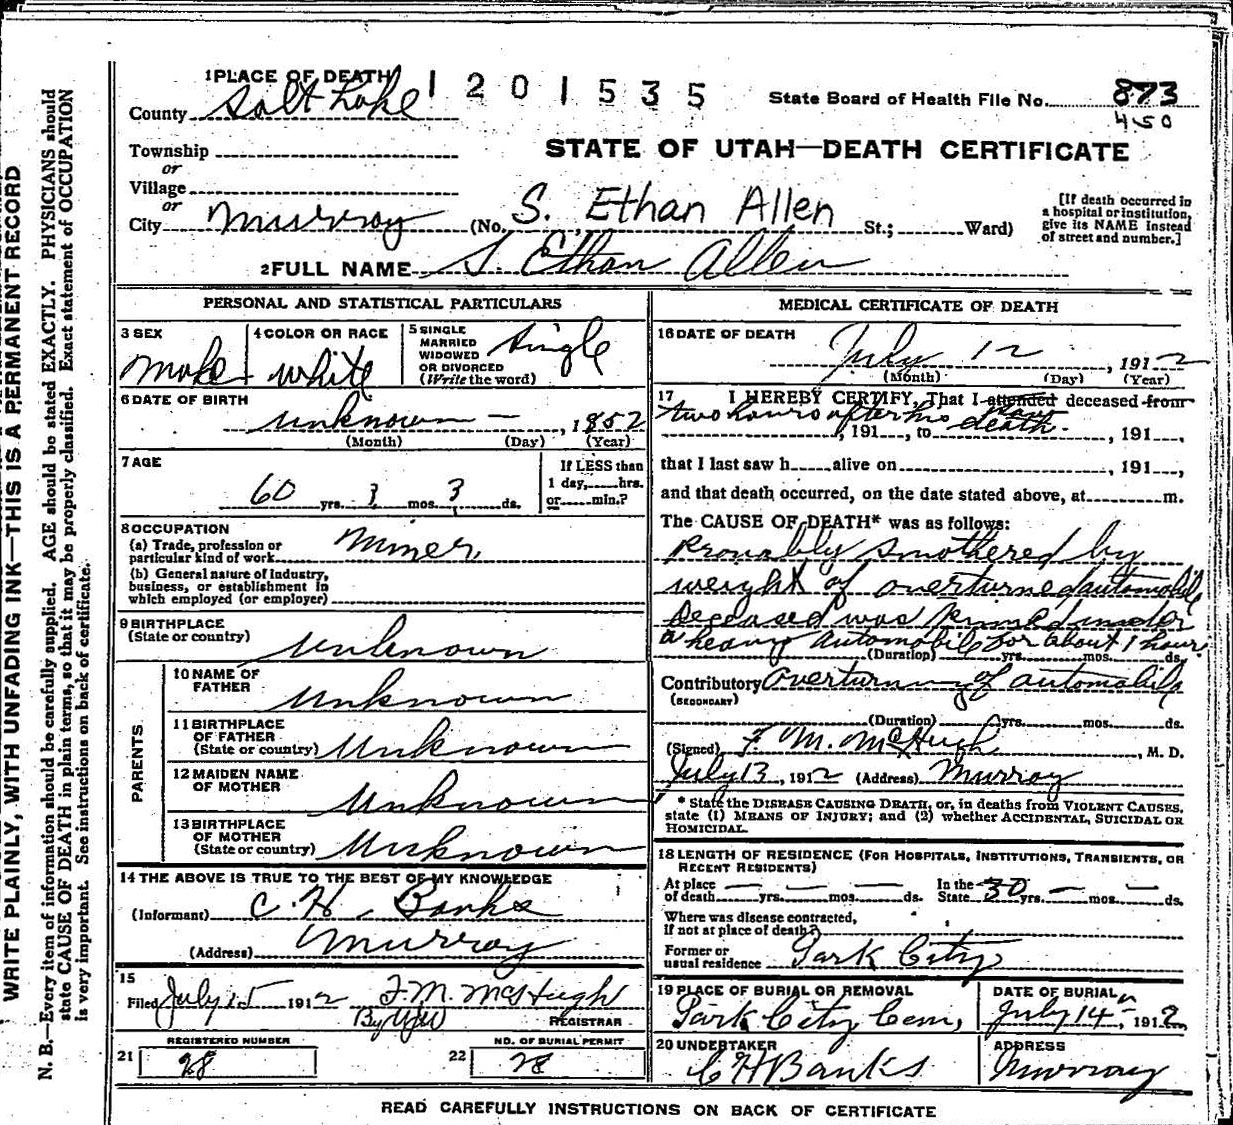 1 PLACE OF DEATH
1201535
State Board of Health File No. 873
450
County Salt Lake
STATE OF UTAH—DEATH CERTIFICATE
Township
or
Village
or
City Murray (No. S. Ethan Allen St.; Ward)
[If death occurred in
a hospital or institution,
give its NAME instead
of street and number.]
2 FULL NAME S. Ethan Allen
PERSONAL AND STATISTICAL PARTICULARS
3 SEX
Male
4 COLOR OR RACE
white
5 SINGLE
MARRIED
WIDOWED
OR DIVORCED
(Write the word)
single
6 DATE OF BIRTH
unknown — , 1852
(Month) (Day) (Year)
7 AGE
60 yrs. mos. ds.
If LESS than
1 day, hrs.
or min.?
8 OCCUPATION
(a) Trade, profession or
particular kind of work Miner
(b) General nature of industry,
business, or establishment in
which employed (or employer)
9 BIRTHPLACE
(State or country) Unknown
PARENTS
10 NAME OF
FATHER Unknown
11 BIRTHPLACE
OF FATHER
(State or country) Unknown
12 MAIDEN NAME
OF MOTHER Unknown
13 BIRTHPLACE
OF MOTHER
(State or country) Unknown
14 THE ABOVE IS TRUE TO THE BEST OF MY KNOWLEDGE
(Informant) C. H. Banks
(Address) Murray
15
Filed July 15 1912 F. M. McHugh
By
REGISTRAR
REGISTERED NUMBER
21 28
NO. OF BURIAL PERMIT
22 28
MEDICAL CERTIFICATE OF DEATH
16 DATE OF DEATH
July 12 , 1912
(Month) (Day) (Year)
17 I HEREBY CERTIFY, That I attended deceased from
two hours after his death.
, 191 , to , 191 ,
that I last saw h alive on , 191 ,
and that death occurred, on the date stated above, at m.
The CAUSE OF DEATH* was as follows:
Probably smothered by
weight of overturned automobile
Deceased was pinned under
a heavy automobile for about 1 hour.
(Duration) yrs. mos. ds.
Contributory Overturning of automobile
(SECONDARY)
(Duration) yrs. mos. ds.
(Signed) F. M. McHugh, M. D.
July 13, 1912 (Address) Murray
* State the DISEASE CAUSING DEATH, or, in deaths from VIOLENT CAUSES,
state (1) MEANS OF INJURY; and (2) whether ACCIDENTAL, SUICIDAL OR
HOMICIDAL.
18 LENGTH OF RESIDENCE (FOR HOSPITALS, INSTITUTIONS, TRANSIENTS, OR
RECENT RESIDENTS)
At place
of death — yrs. — mos. — ds.
In the
State 30 yrs. — mos. — ds.
Where was disease contracted,
If not at place of death?
Former or
usual residence Park City
19 PLACE OF BURIAL OR REMOVAL
Park City Cem,
DATE OF BURIAL
July 14, 1912
20 UNDERTAKER
C H Banks
ADDRESS
Murray
READ CAREFULLY INSTRUCTIONS ON BACK OF CERTIFICATE
WRITE PLAINLY, WITH UNFADING INK—THIS IS A PERMANENT RECORD
N. B.—Every item of information should be carefully supplied. AGE should be stated EXACTLY. PHYSICIANS should
state CAUSE OF DEATH in plain terms, so that it may be properly classified. Exact statement of OCCUPATION
is very important. See instructions on back of certificate.